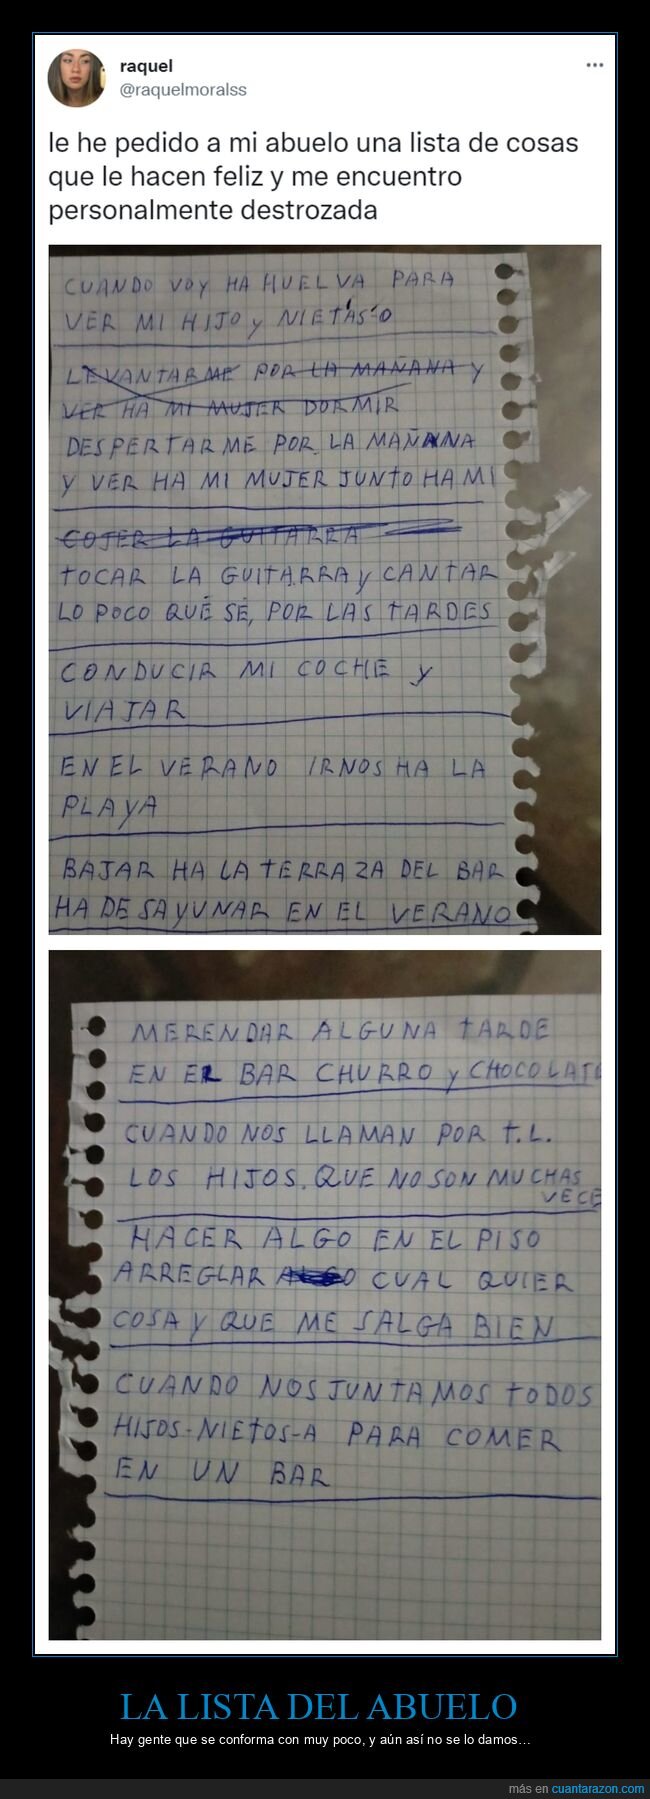 raquel
@raquelmoralss
le he pedido a mi abuelo una lista de cosas
que le hacen feliz y me encuentro
personalmente destrozada
CUANDO VOY HA HUELVA PARA
VER MI HIJO y NIETAS-O
LEVANTARME POR LA MAÑANA y
VER HA MI MUJER DORMIR
DESPERTARME POR LA MAÑANA
Y VER HA MI MUJER JUNTO HA MI
COJER LA GUITARRA
TOCAR LA GUITARRA y CANTAR
LO POCO QUÉ SÉ, POR LAS TARDES
CONDUCIR MI COCHE y
VIAJAR
EN EL VERANO IRNOS HA LA
PLAYA
BAJAR HA LA TERRAZA DEL BAR
HA DESAYUNAR EN EL VERANO
MERENDAR ALGUNA TARDE
EN EL BAR CHURRO y CHOCOLATE
CUANDO NOS LLAMAN POR T.L.
LOS HIJOS. QUE NO SON MUCHAS
VECE
HACER ALGO EN EL PISO
ARREGLAR ALGO CUAL QUIER
COSA Y QUE ME SALGA BIEN
CUANDO NOS JUNTAMOS TODOS
HIJOS-NIETOS-A PARA COMER
EN UN BAR
LA LISTA DEL ABUELO
Hay gente que se conforma con muy poco, y aún así no se lo damos...
más en cuantarazon.com